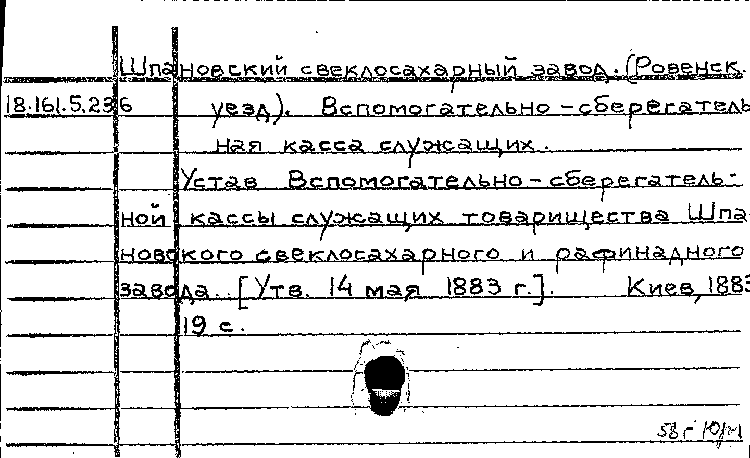 Шпановский свеклосахарный завод. (Ровенск.
18.161.5.236 уезд). Вспомогательно-сберегатель
ная касса служащих.
Устав Вспомогательно-сберегатель-
ной кассы служащих товарищества Шпа-
новского свеклосахарного и рафинадного
завода. [Утв. 14 мая 1883 г.]. Киев, 1883
19 с.